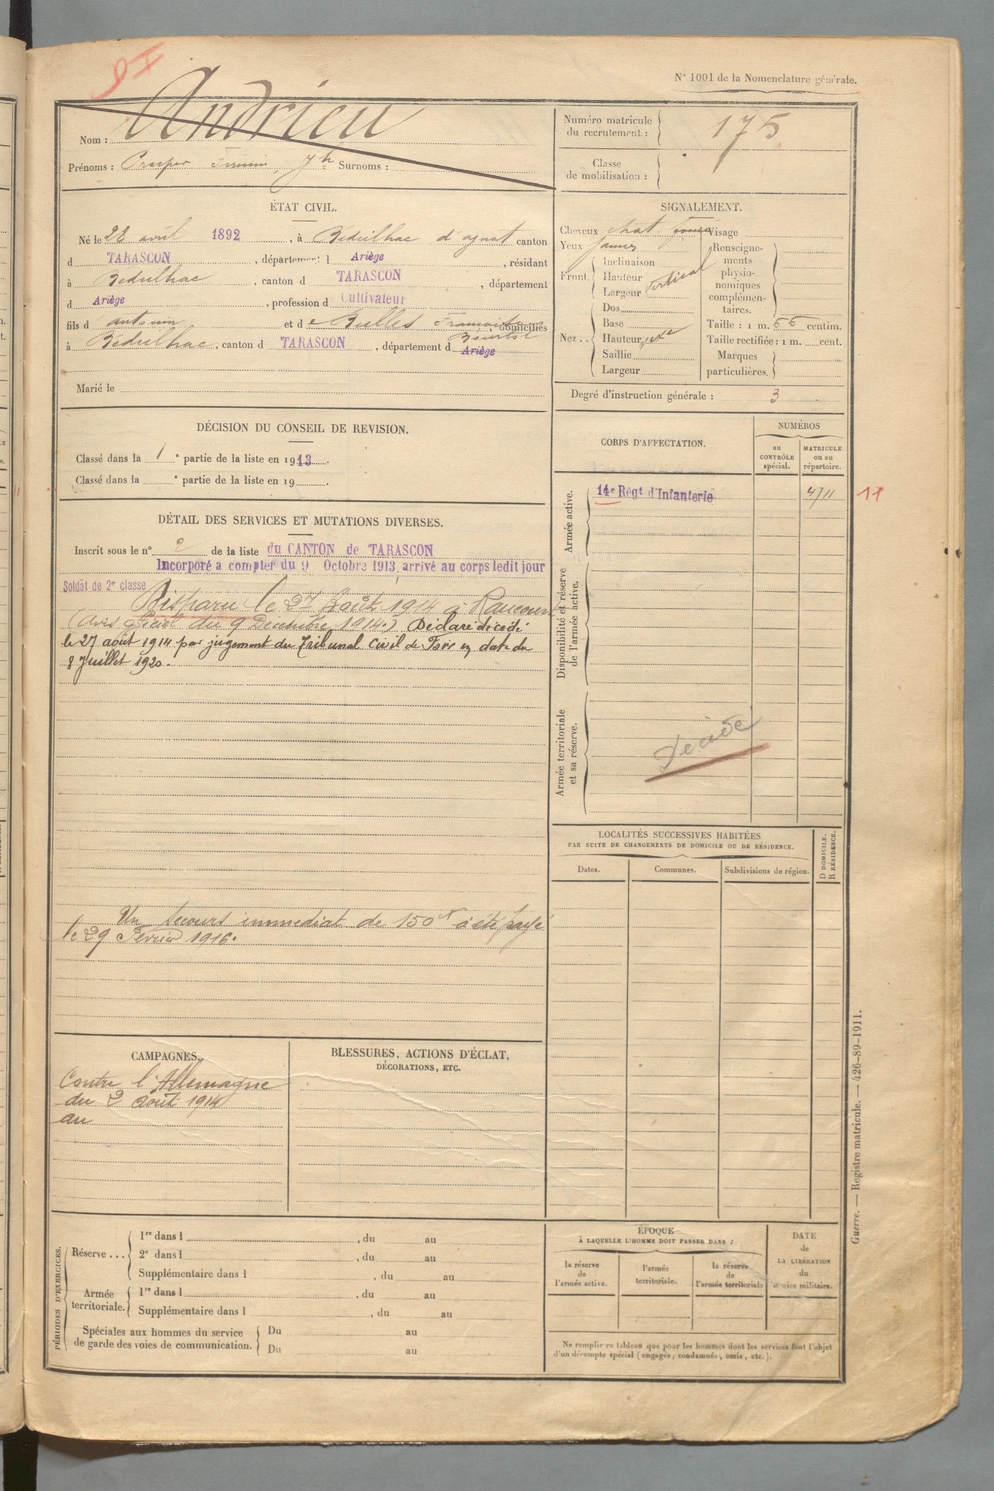 N° 1001 de la Nomenclature générale.
Nom : Andrieu
Prénoms : Prosper Firmin, Jh Surnoms :
Numéro matricule du recrutement : 175
Classe de mobilisation :
ÉTAT CIVIL.
Né le 28 avril 1892, à Bédeilhac d'aynat canton
d TARASCON, département d Ariège, résidant
à Bédeilhac, canton d TARASCON, département
d Ariège, profession d Cultivateur
fils d antonin et de Bulles domiciliés
à Bédeilhac, canton d TARASCON, département d Ariège
Marié le
SIGNALEMENT.
Cheveux chat Visage
Yeux jaunes
Front. Inclinaison
Hauteur
Largeur vertical
Nez... Dos
Base
Hauteur
Saillie
Largeur
Renseignements physionomiques complémentaires.
Taille : 1 m. 66 centim.
Taille rectifiée : 1 m. cent.
Marques particulières.
Degré d'instruction générale : 3
DÉCISION DU CONSEIL DE REVISION.
Classé dans la 1e partie de la liste en 1913.
Classé dans la e partie de la liste en 19
CORPS D'AFFECTATION.
NUMÉROS
au CONTRÔLE spécial.
MATRICULE ou au répertoire.
Armée active.
14e Régt d'Infanterie 4711 11
Disponibilité et réserve de l'armée active.
Armée territoriale et sa réserve.
Décédé
DÉTAIL DES SERVICES ET MUTATIONS DIVERSES.
Inscrit sous le n° 2 de la liste du CANTON de TARASCON
Incorporé à compter du 9 Octobre 1913, arrivé au corps ledit jour
Soldat de 2e classe Disparu le 27 Août 1914 à Raucourt
(avis officiel du 9 Décembre 1914.) Déclaré décédé
le 27 août 1914 par jugement du Tribunal civil de Foix en date du
8 Juillet 1920.
Un secours immédiat de 150f a été payé
le 29 Février 1916.
LOCALITÉS SUCCESSIVES HABITÉES
PAR SUITE DE CHANGEMENTS DE DOMICILE OU DE RÉSIDENCE.
Dates. Communes. Subdivisions de région. D DOMICILE. R RÉSIDENCE.
CAMPAGNES.
Contre l'Allemagne
du 2 Août 1914
au
BLESSURES, ACTIONS D'ÉCLAT,
DÉCORATIONS, ETC.
PÉRIODES D'EXERCICES.
Réserve... 1re dans l , du au
2e dans l , du au
Supplémentaire dans l , du au
Armée territoriale. 1re dans l , du au
Supplémentaire dans l , du au
Spéciales aux hommes du service Du au
de garde des voies de communication. Du au
ÉPOQUE
À LAQUELLE L'HOMME DOIT PASSER DANS :
la réserve de l'armée active.
l'armée territoriale.
la réserve de l'armée territoriale
DATE de LA LIBÉRATION du service militaire.
Ne remplir ce tableau que pour les hommes dont les services font l'objet
d'un décompte spécial (engagés, condamnés, omis, etc.).
Guerre. — Registre matricule. — 426-89-1911.